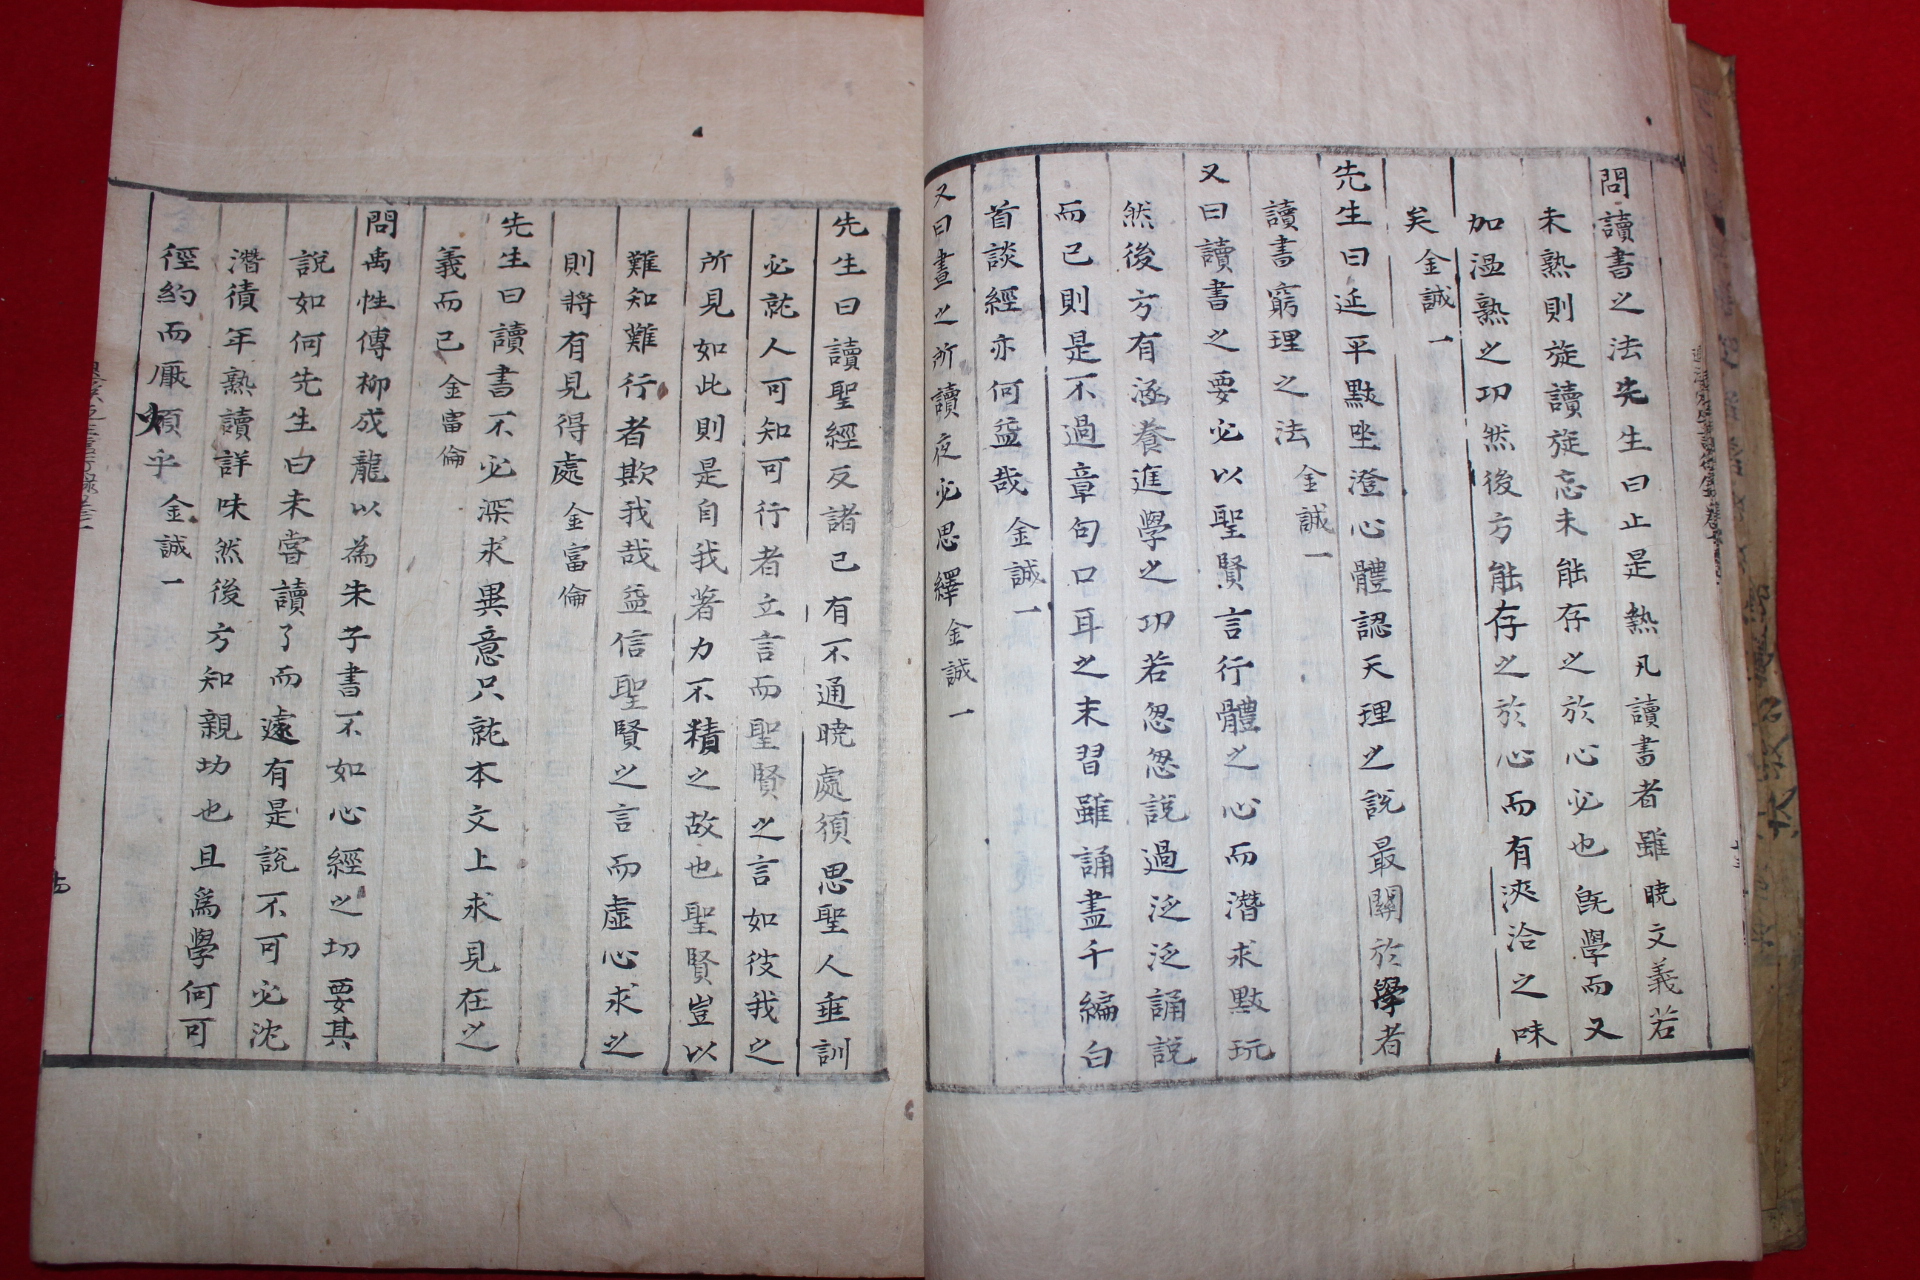 問讀書之法先生曰止是熟凡讀書者雖曉文義若
未熟則旋讀旋忘未能存之於心必也旣學而又
加溫熟之功然後方能存之於心而有浹洽之味
矣 金誠一
先生曰延平黙坐澄心體認天理之說最關於學者
讀書窮理之法 金誠一
又曰讀書之要必以聖賢言行體之心而潛求黙玩
然後方有涵養進學之功若忽忽說過泛泛誦說
而已則是不過章句口耳之末習雖誦盡千編白
首談經亦何益哉 金誠一
又曰晝之所讀夜必思繹 金誠一
先生曰讀聖經反諸己有不通曉處須思聖人垂訓
必就人可知可行者立言而聖賢之言如彼我之
所見如此則是自我著力不精之故也聖賢豈以
難知難行者欺我哉益信聖賢之言而虛心求之
則將有見得處 金富倫
先生曰讀書不必深求異意只就本文上求見在之
義而已 金富倫
問禹性傳柳成龍以為朱子書不如心經之切要其
說如何先生曰未嘗讀了而遽有是說不可必沈
潛積年熟讀詳味然後方知親功也且爲學何可
徑約而厭煩乎 金誠一